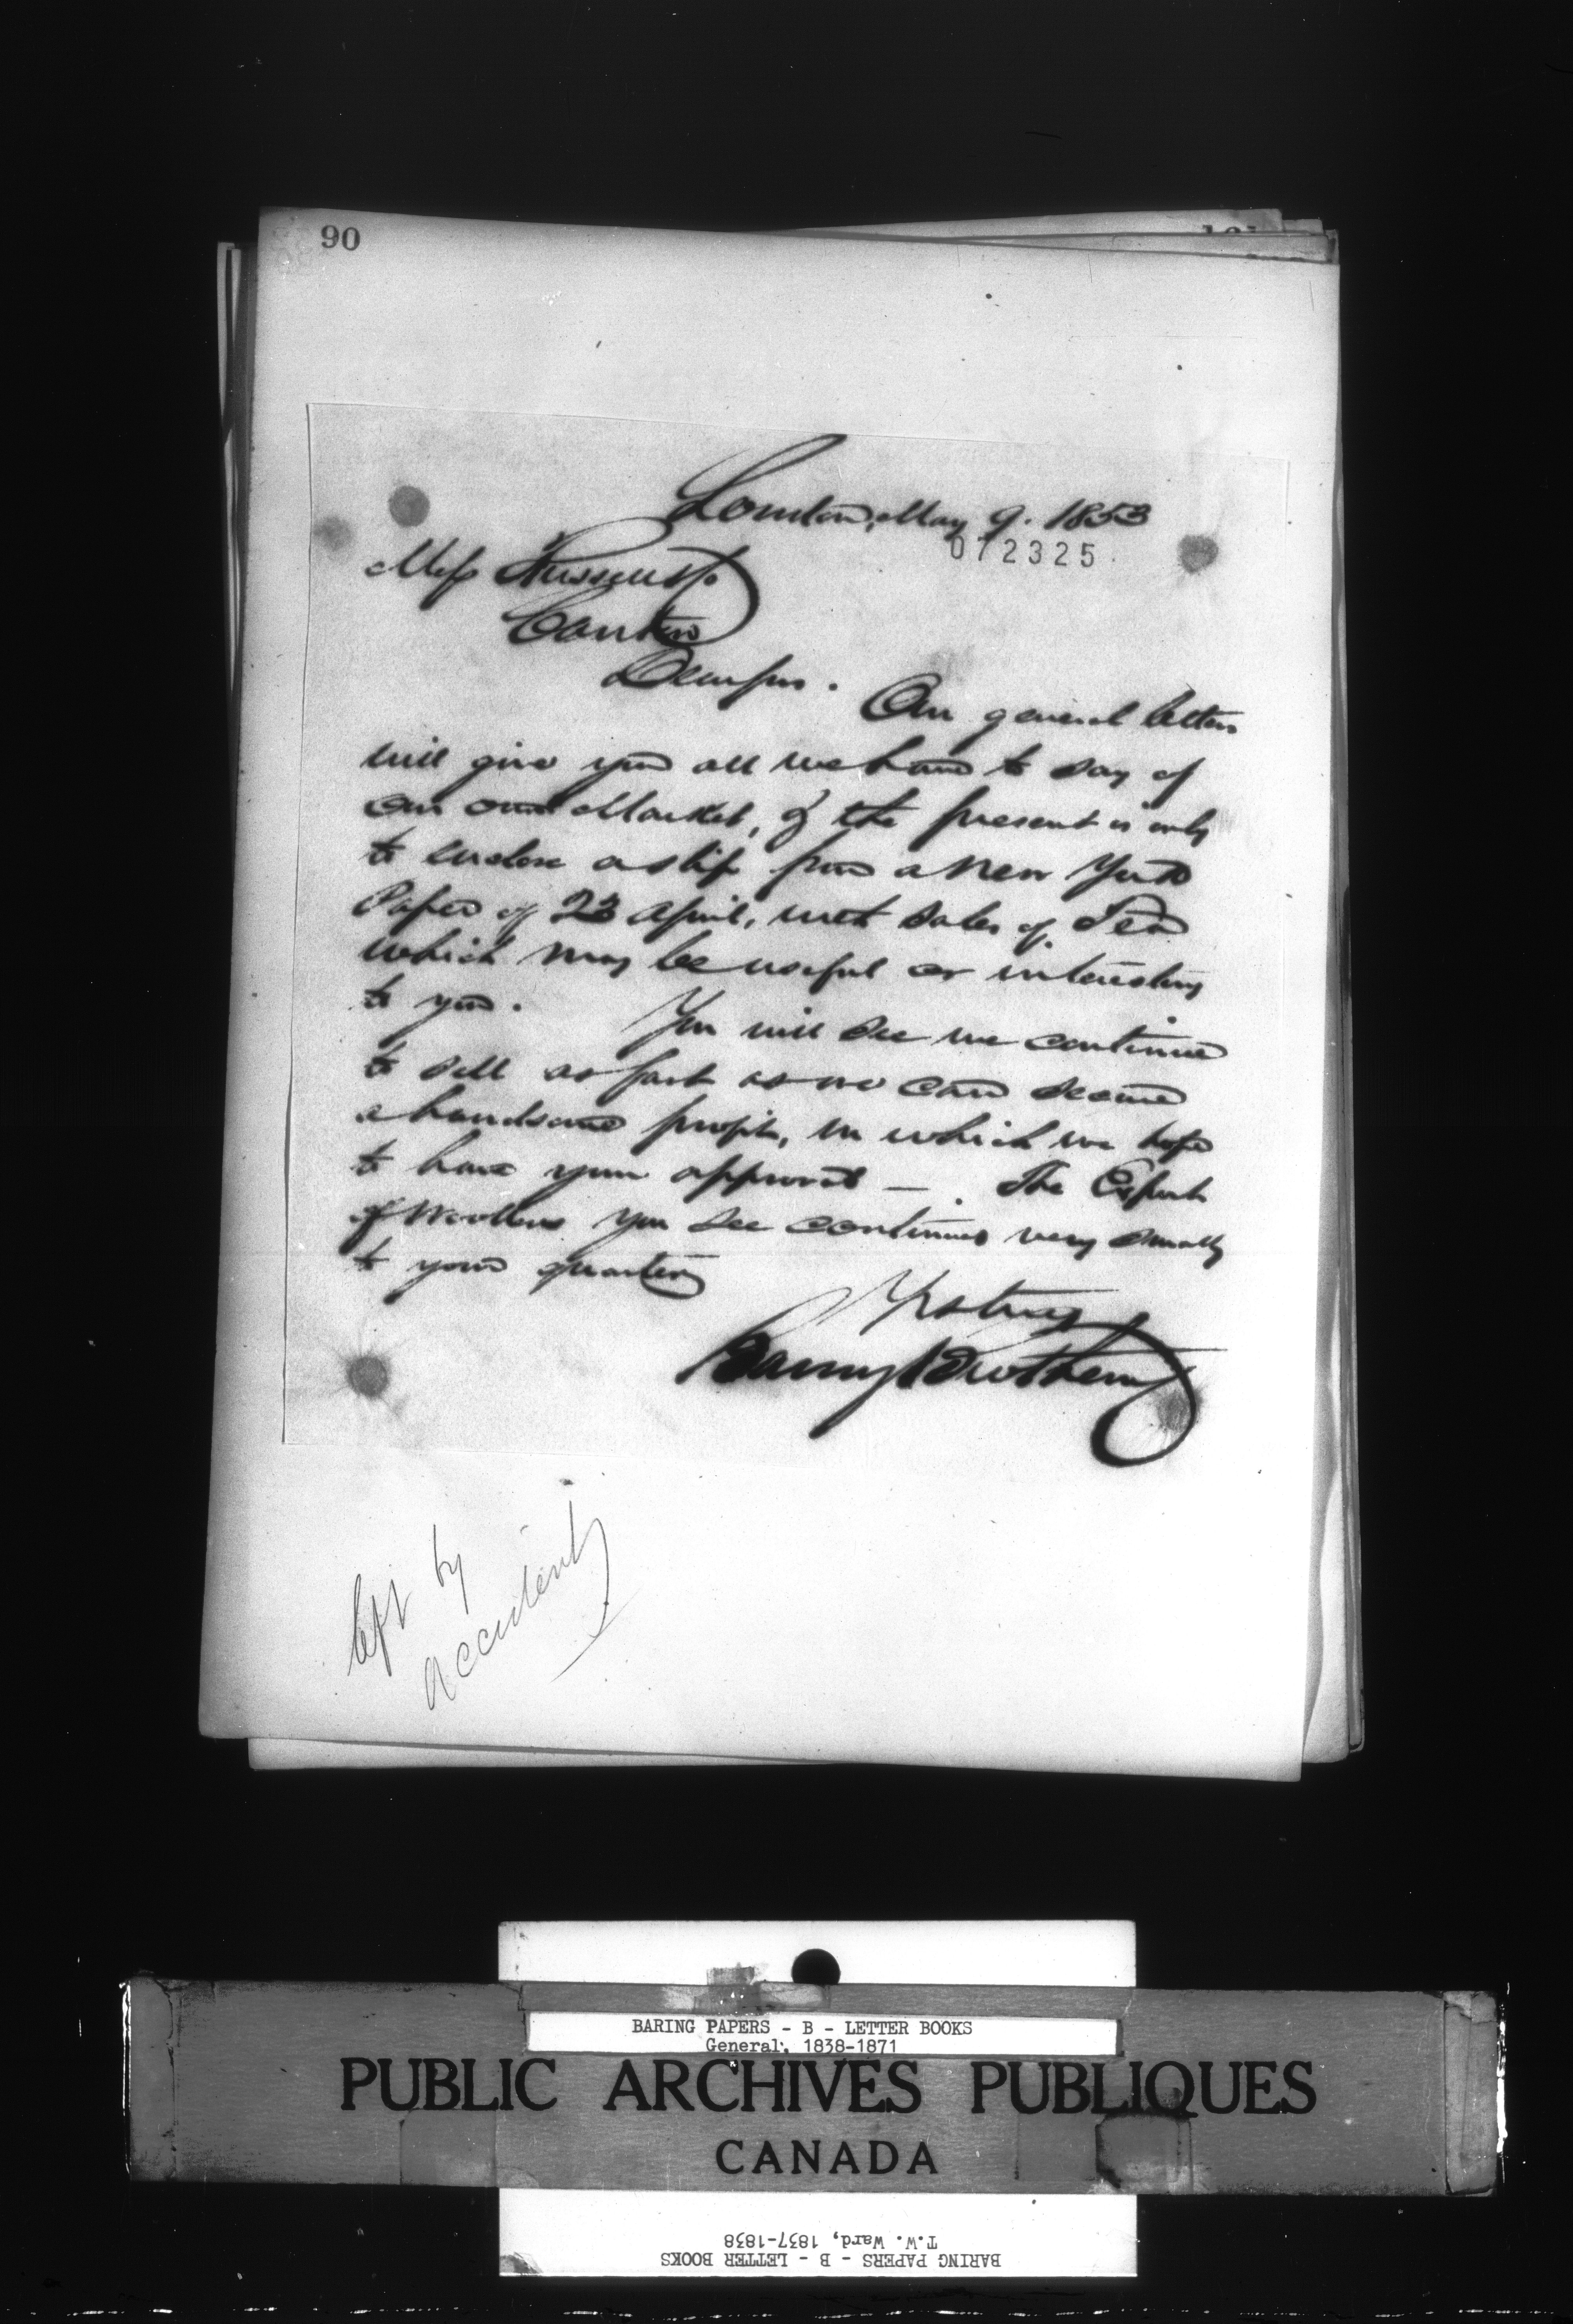 90
London, May 9. 1853
072325.
Mess Russell & Co
Canton
Dear Sirs.
Our general letters
will give you all we have to say of
our own Market, & the present is only
to enclose a slip from a New York
Paper of 23 April, with sales of Tea
which may be useful or interesting
to you.
You will see we continue
to sell as fast as we can secure
a handsome profit, in which we hope
to have your approval — . The Export
of Woollens you see continues very small
to your quarter
Yrs truly
Baring Brothers
left by
accident
BARING PAPERS - B - LETTER BOOKS
General, 1838-1871
PUBLIC ARCHIVES PUBLIQUES
CANADA
BARING PAPERS - B - LETTER BOOKS
T.W. Ward, 1837-1838